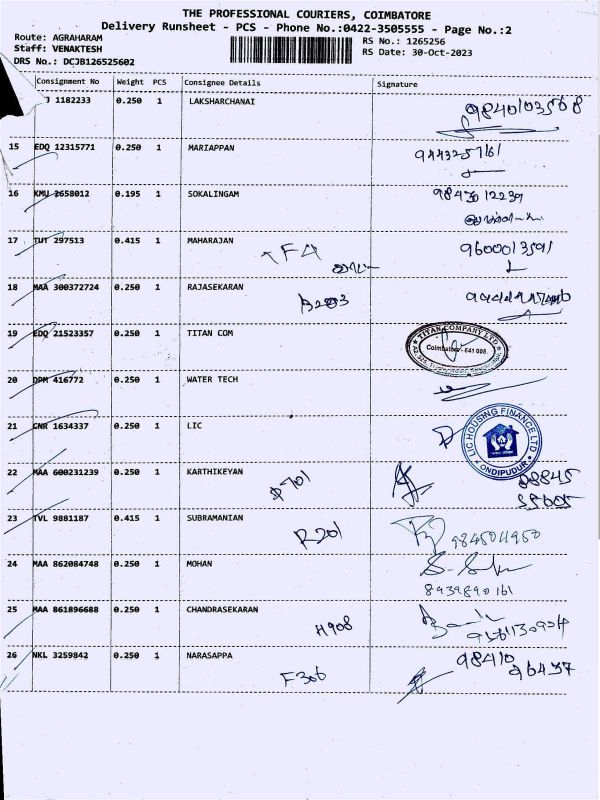 THE PROFESSIONAL COURIERS, COIMBATORE
Delivery Runsheet - PCS - Phone No.:0422-3505555 - Page No.:2
Route: AGRAHARAM
RS No.: 1265256
Staff: VENAKTESH
RS Date: 30-Oct-2023
DRS No.: DCJB126525602
Consignment No Weight PCS Consignee Details Signature
1182233 0.250 1 LAKSHARCHANAI 9840103568
15 EDQ 12315771 0.250 1 MARIAPPAN
16 KMU 2658012 0.195 1 SOKALINGAM
17 TUT 297513 0.415 1 MAHARAJAN
18 MAA 300372724 0.250 1 RAJASEKARAN
19 EDQ 21523357 0.250 1 TITAN COM
TITAN COMPANY LTD
Coimbatore - 641 005.
20 DPM 416772 0.250 1 WATER TECH
21 CNR 1634337 0.250 1 LIC
LIC HOUSING FINANCE LTD
ONDIPUDUR
22 MAA 600231239 0.250 1 KARTHIKEYAN
23 TVL 9881187 0.415 1 SUBRAMANIAN
R201
24 MAA 862084748 0.250 1 MOHAN
8939890161
25 MAA 861896688 0.250 1 CHANDRASEKARAN
H908
26 NKL 3259842 0.250 1 NARASAPPA 98410
F306 96437